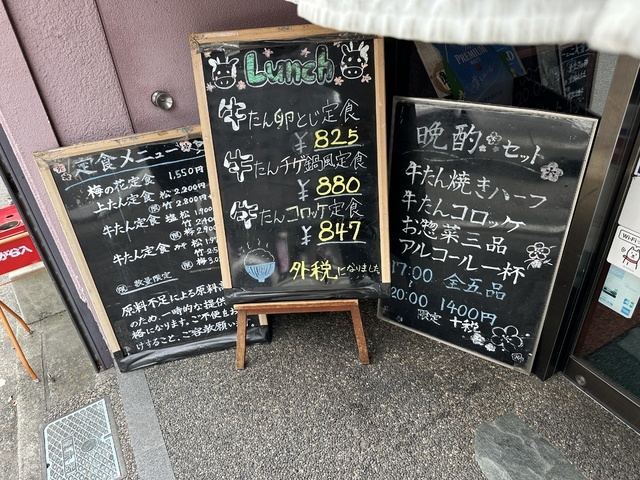 定食メニュー
梅の花定食 1,550円
上たん定食 松 2,200円
竹 2,800
牛たん定食 塩 松
竹
牛たん定食 松
竹
梅
数量限定
原料不足による原料
のため、一時的な提供
格になります。ご不便を
けすること、ご容赦願い
Lunch
牛たん卵とじ定食
¥825
牛たんチゲ鍋風定食
¥880
牛たんコロッケ定食
¥847
外税になりました
晩酌セット
牛たん焼きハーフ
牛たんコロッケ
お惣菜三品
アルコール一杯
17:00 全五品
20:00 1400円
限定 +税
PREMIUM
Wi-Fi